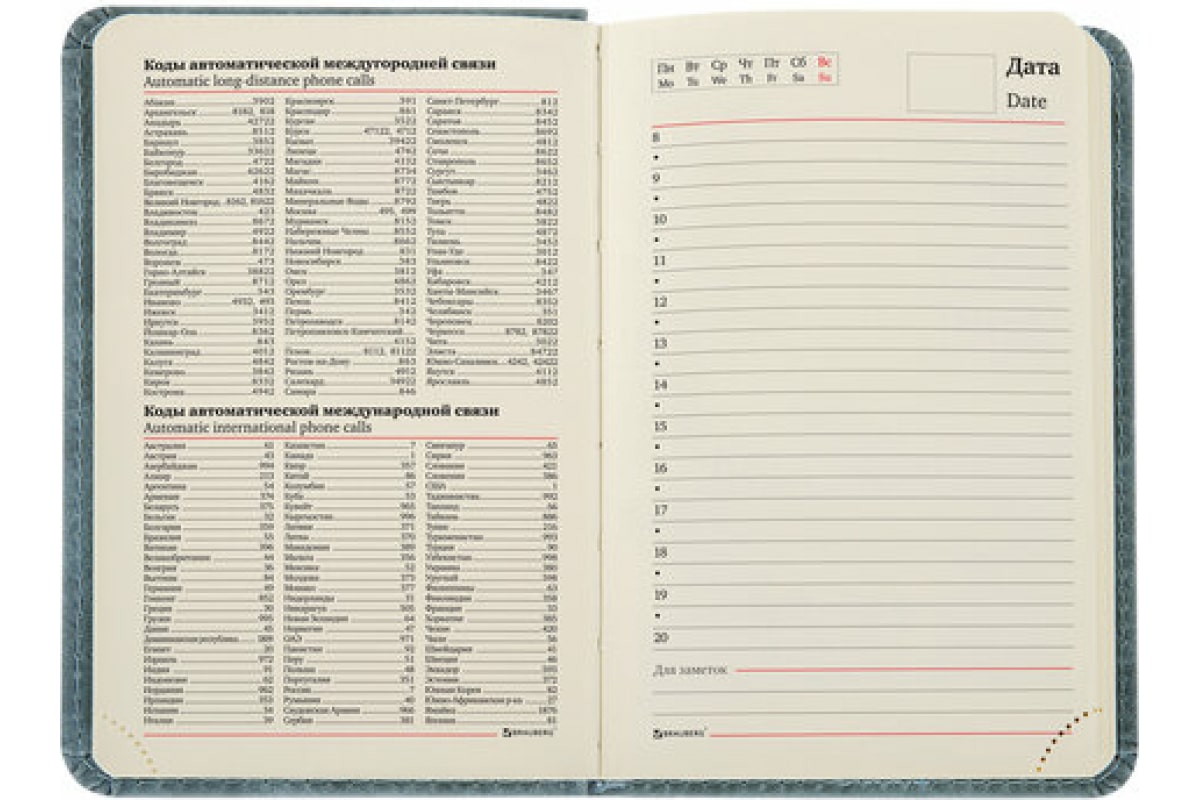 Коды автоматической междугородней связи
Automatic long-distance phone calls
Абакан 3902
Архангельск 8182, 818
Анадырь 42722
Астрахань 8512
Барнаул 3852
Байконур 33622
Белгород 4722
Биробиджан 42622
Благовещенск 4162
Брянск 4832
Великий Новгород 8162, 81622
Владивосток 423
Владикавказ 8672
Владимир 4922
Волгоград 8442
Вологда 8172
Воронеж 473
Горно-Алтайск 38822
Грозный 8712
Екатеринбург 343
Иваново 4932, 493
Ижевск 3412
Иркутск 3952
Йошкар-Ола 8362
Казань 843
Калининград 4012
Калуга 4842
Кемерово 3842
Киров 8332
Кострома 4942
Красноярск 391
Краснодар 861
Курган 3522
Курск 47122, 4712
Кызыл 39422
Липецк 4742
Магадан 4132
Магас 8734
Майкоп 8772
Махачкала 8722
Минеральные Воды 8792
Москва 495, 499
Мурманск 8152
Набережные Челны 8552
Нальчик 8662
Нижний Новгород 831
Новосибирск 383
Омск 3812
Орел 4862
Оренбург 3532
Пенза 8412
Пермь 342
Петрозаводск 8142
Петропавловск-Камчатский
4152
Псков 8112, 81122
Ростов-на-Дону 863
Рязань 4912
Салехард 34922
Самара 846
Санкт-Петербург 812
Саранск 8342
Саратов 8452
Севастополь 8692
Смоленск 4812
Сочи 8622
Ставрополь 8652
Сургут 3462
Сыктывкар 8212
Тамбов 4752
Тверь 4822
Тольятти 8482
Томск 3822
Тула 4872
Тюмень 3452
Улан-Удэ 3012
Ульяновск 8422
Уфа 347
Хабаровск 4212
Ханты-Мансийск 3467
Чебоксары 8352
Челябинск 351
Череповец 8202
Черкесск 8782, 87822
Чита 3022
Элиста 84722
Южно-Сахалинск 4242, 42422
Якутск 4112
Ярославль 4852
Коды автоматической международной связи
Automatic international phone calls
Австралия 61
Австрия 43
Азербайджан 994
Алжир 213
Аргентина 54
Армения 374
Беларусь 375
Бельгия 32
Болгария 359
Бразилия 55
Ватикан 396
Великобритания 44
Венгрия 36
Вьетнам 84
Германия 49
Гонконг 852
Греция 30
Грузия 995
Дания 45
Доминиканская республика 1809
Египет 20
Израиль 972
Индия 91
Индонезия 62
Иордания 962
Ирландия 353
Испания 34
Италия 39
Казахстан 7
Канада 1
Кипр 357
Китай 86
Колумбия 57
Куба 53
Кувейт 965
Кыргызстан 996
Латвия 371
Литва 370
Македония 389
Мальта 356
Мексика 52
Молдова 373
Монако 377
Нидерланды 31
Никарагуа 505
Новая Зеландия 64
Норвегия 47
ОАЭ 971
Пакистан 92
Перу 51
Польша 48
Португалия 351
Россия 7
Румыния 40
Саудовская Аравия 966
Сербия 381
Сингапур 65
Сирия 963
Словакия 421
Словения 386
США 1
Таджикистан 992
Таиланд 66
Тайвань 886
Тунис 216
Туркменистан 993
Турция 90
Узбекистан 998
Украина 380
Уругвай 598
Филиппины 63
Финляндия 358
Франция 33
Хорватия 385
Чехия 420
Чили 56
Швейцария 41
Швеция 46
Эквадор 593
Эстония 372
Южная Корея 82
Южно-Африканская р-ка 27
Ямайка 1876
Япония 81
BRAUBERG
Пн Вт Ср Чт Пт Сб Вс
Mo Tu We Th Fr Sa Su
Дата
Date
8
9
10
11
12
13
14
15
16
17
18
19
20
Для заметок
BRAUBERG